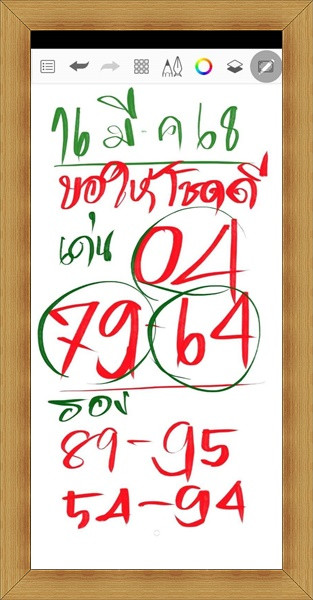 16 มี.ค 68
ขอให้โชคดี
เด่น 04
79-64
รอง
89-95
54-94